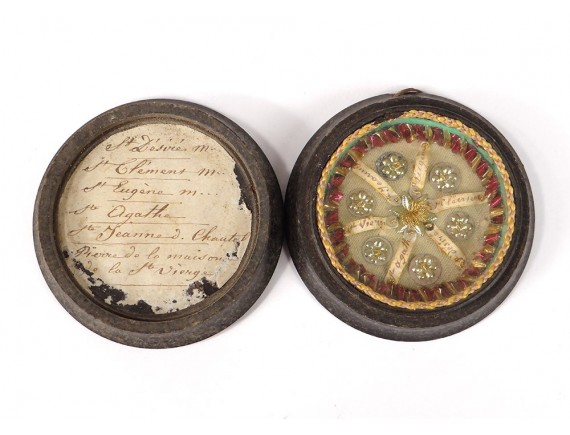 St Désiré m...
St Clément m...
St Eugène m...
Ste Agathe
Ste Jeanne d. Chantal
Pierre de la maison
de la Ste Vierge